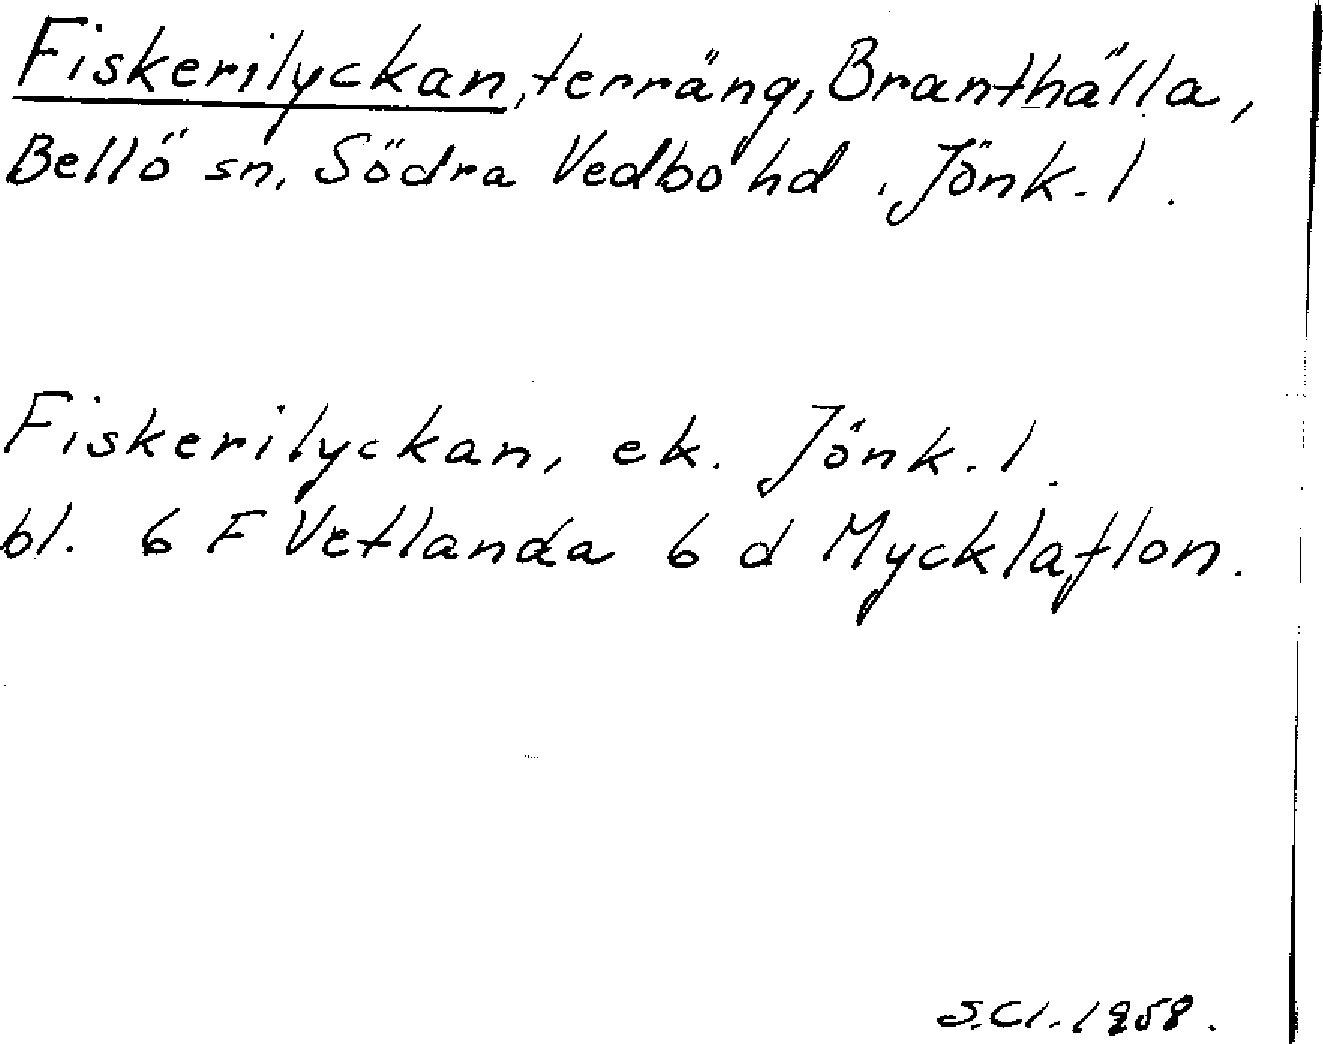 Fiskerilyckan, terräng, Branthälla,
Bellö sn, Södra Vedbo hd, Jönk. l.
Fiskerilyckan, ek. Jönk. l.
bl. 6 F Vetlanda 6 d Mycklaflon.
S.Cl. 1958.